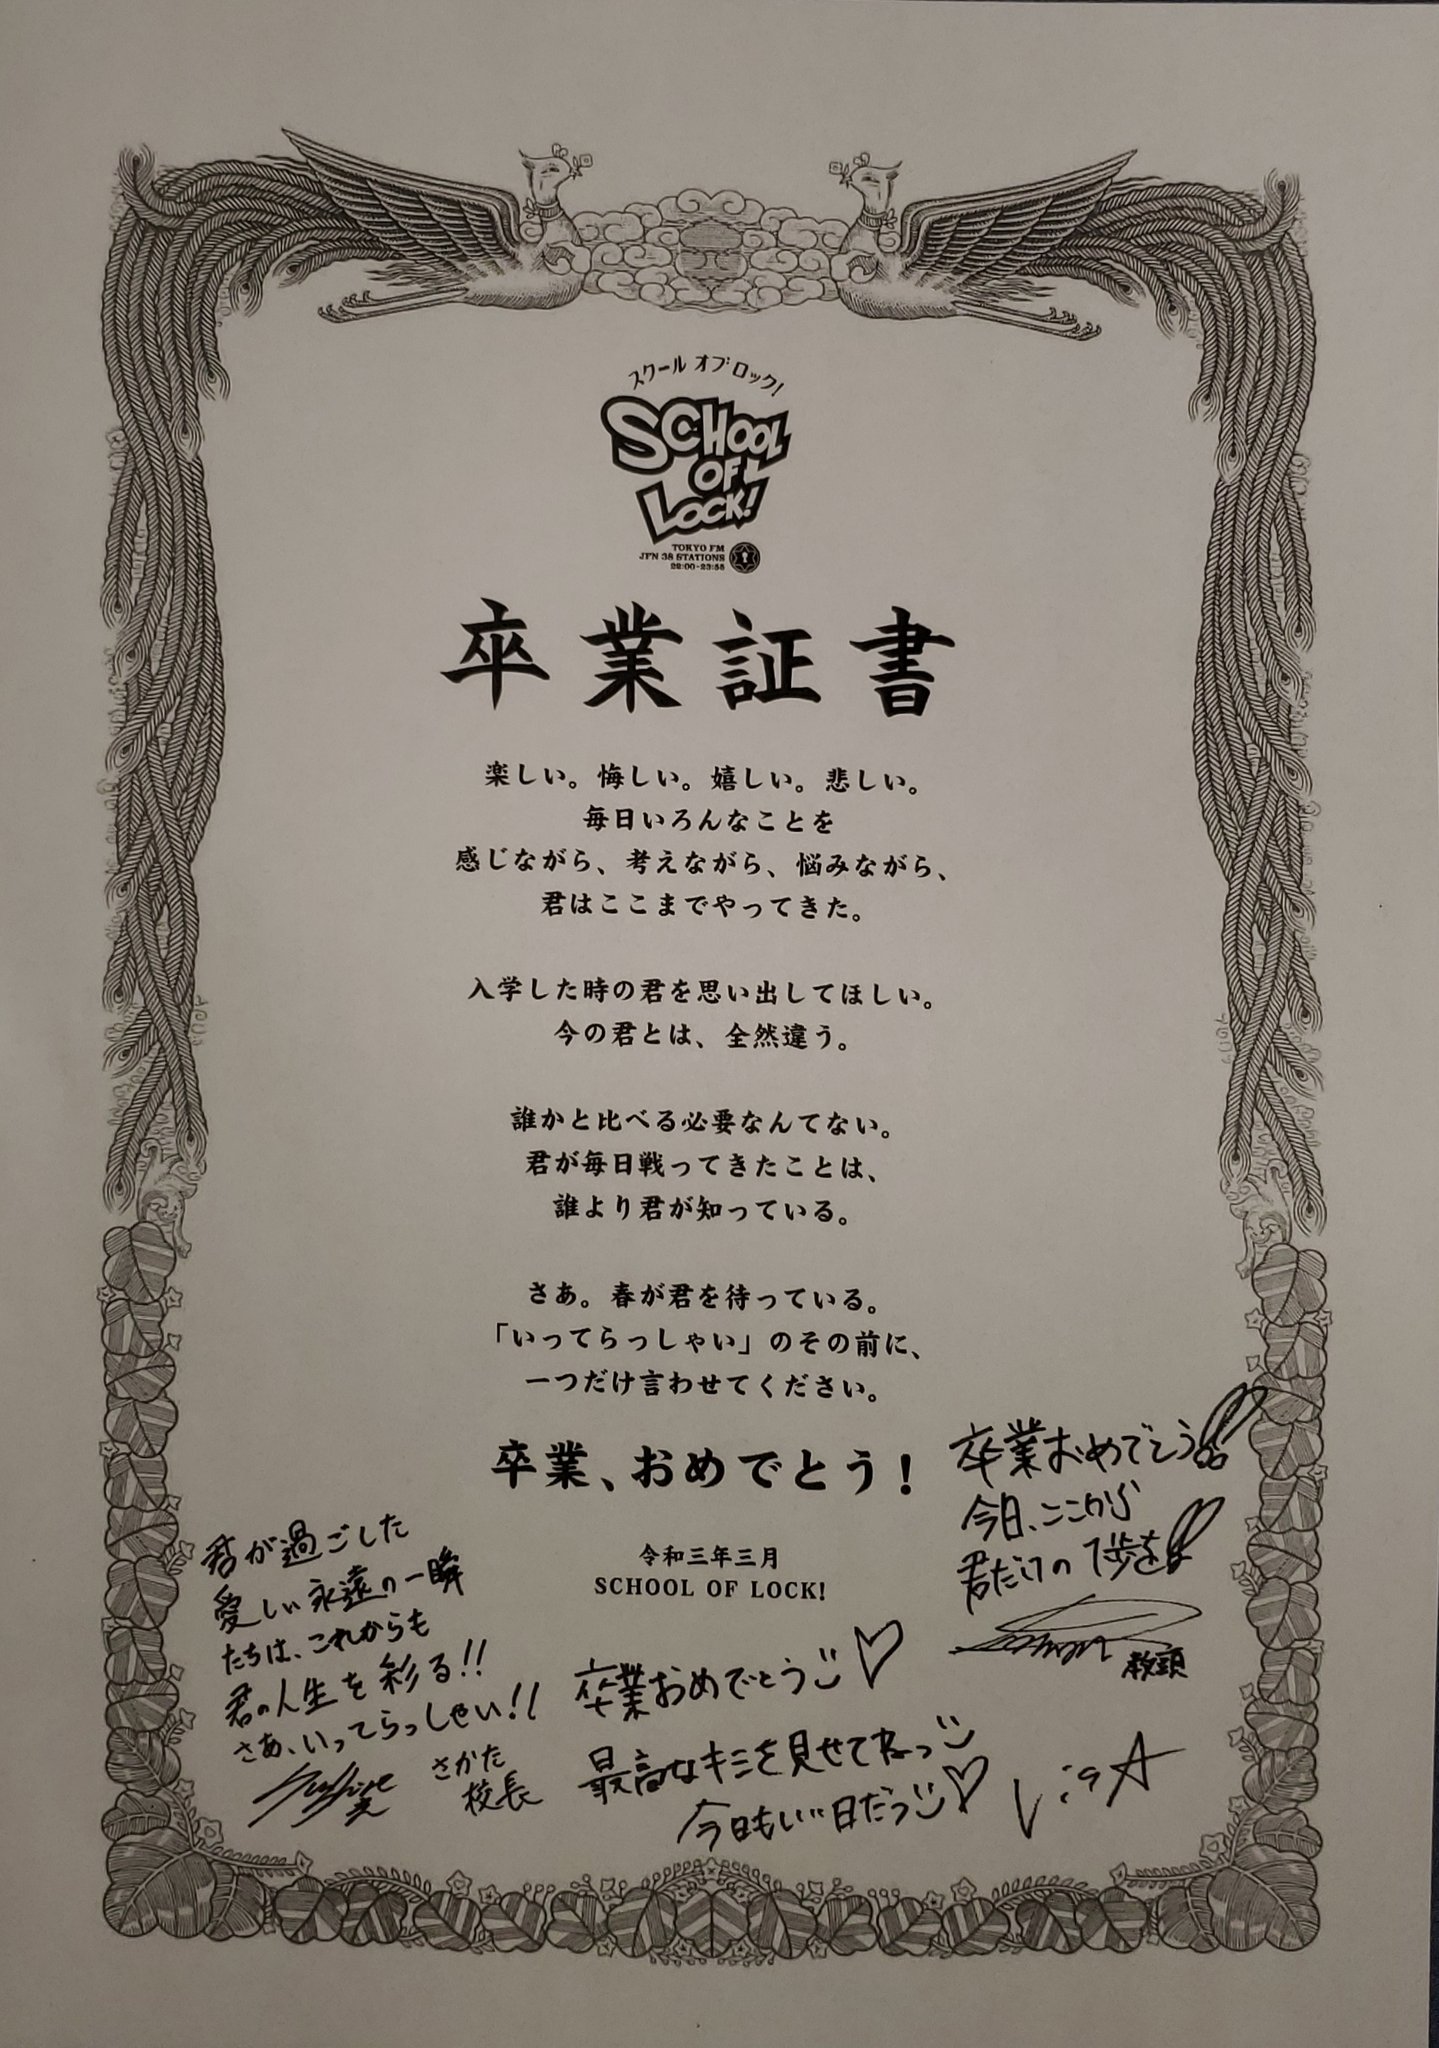 スクール オブ ロック!
SCHOOL
OF
LOCK!
TOKYO FM
JFN 38 STATIONS
22:00-23:55
卒業証書
楽しい。悔しい。嬉しい。悲しい。
毎日いろんなことを
感じながら、考えながら、悩みながら、
君はここまでやってきた。
入学した時の君を思い出してほしい。
今の君とは、全然違う。
誰かと比べる必要なんてない。
君が毎日戦ってきたことは、
誰より君が知っている。
さあ。春が君を待っている。
「いってらっしゃい」のその前に、
一つだけ言わせてください。
卒業、おめでとう!
令和三年三月
SCHOOL OF LOCK!
卒業おめでとう!!
今日、ここから
君だけの1歩を!
教頭
君が過ごした
愛しい永遠の一瞬
たちは、これからも
君の人生を彩る!!
さあ、いってらっしゃい!!
さかた
校長
卒業おめでとう
最高なキミを見せてねっ
今日もいい日だっ
LiSA